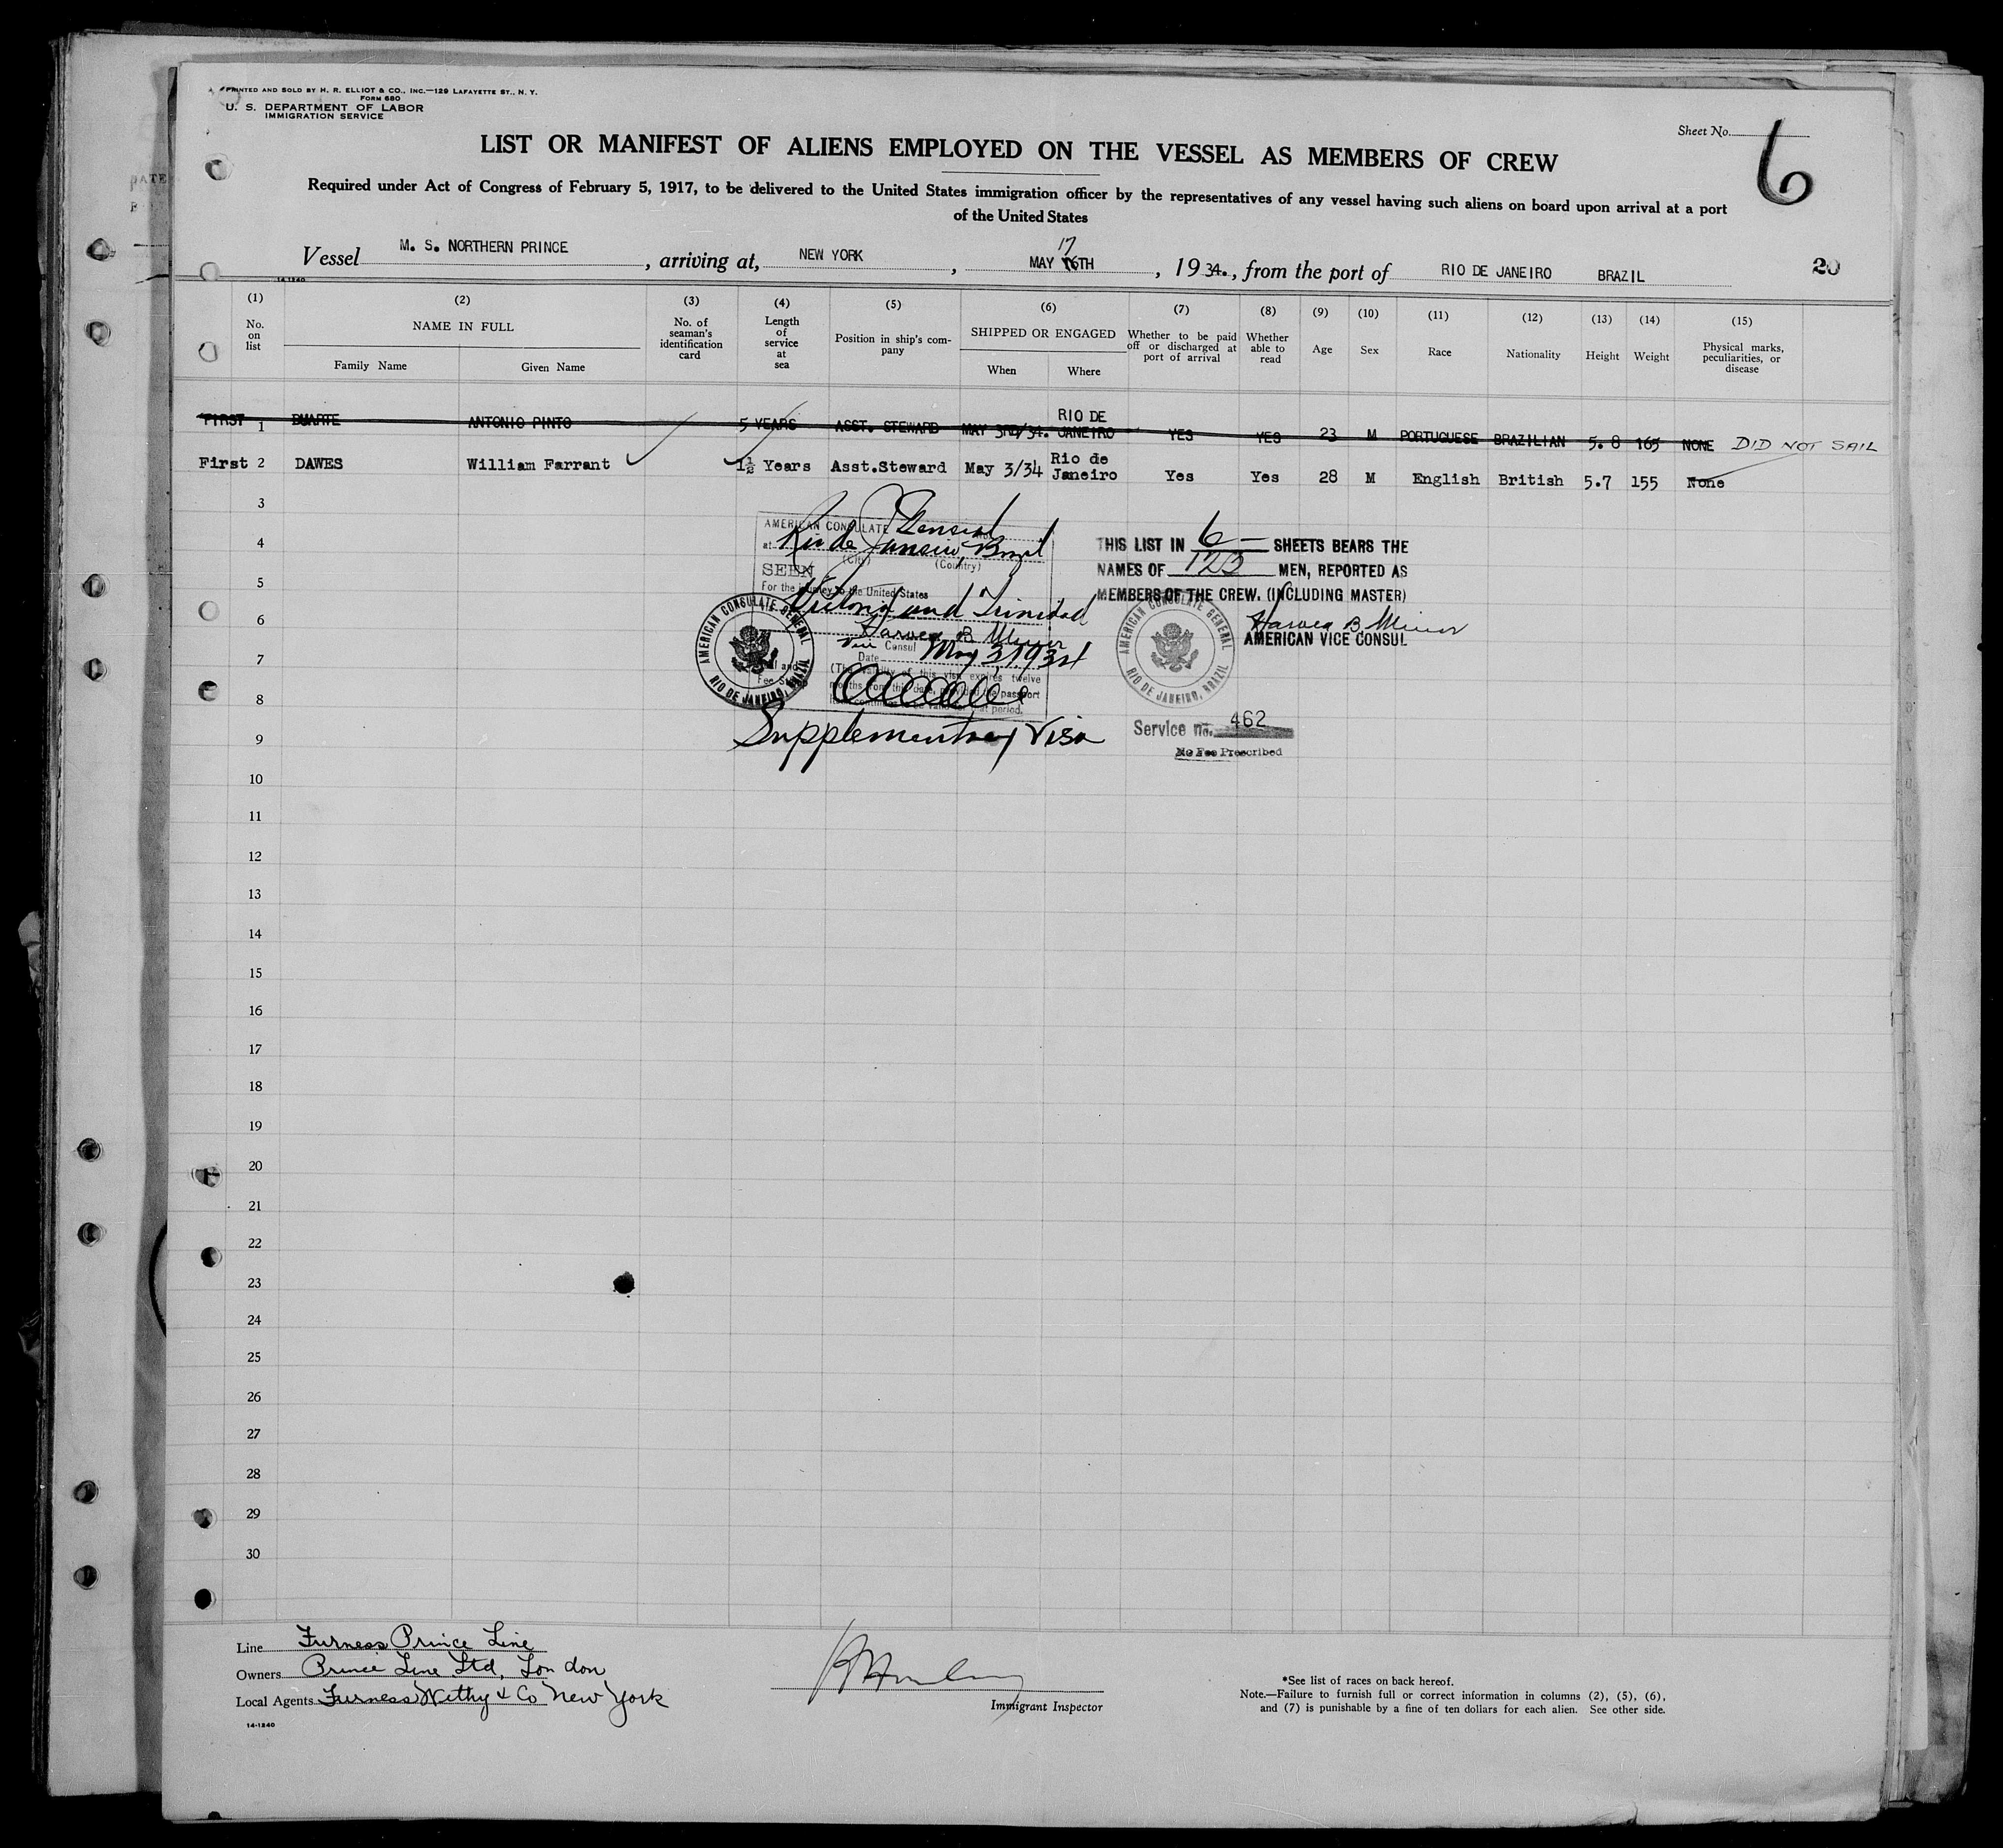 PRINTED AND SOLD BY H. R. ELLIOT & CO., INC.—129 LAFAYETTE ST., N. Y.
FORM 680
U. S. DEPARTMENT OF LABOR
IMMIGRATION SERVICE
Sheet No. 6
LIST OR MANIFEST OF ALIENS EMPLOYED ON THE VESSEL AS MEMBERS OF CREW
Required under Act of Congress of February 5, 1917, to be delivered to the United States immigration officer by the representatives of any vessel having such aliens on board upon arrival at a port
of the United States
Vessel M. S. NORTHERN PRINCE, arriving at, NEW YORK, MAY 17 16TH, 1934., from the port of RIO DE JANEIRO BRAZIL 20
14-1240
(1) (2) (3) (4) (5) (6) (7) (8) (9) (10) (11) (12) (13) (14) (15)
No. on list NAME IN FULL Family Name Given Name No. of seaman's identification card Length of service at sea Position in ship's company SHIPPED OR ENGAGED When Where Whether to be paid off or discharged at port of arrival Whether able to read Age Sex Race Nationality Height Weight Physical marks, peculiarities, or disease
FIRST 1 DUARTE ANTONIO PINTO 5 YEARS ASST. STEWARD MAY 3RD/34. RIO DE JANEIRO YES YES 23 M PORTUGUESE BRAZILIAN 5.8 165 NONE DID NOT SAIL
First 2 DAWES William Farrant 1½ Years Asst.Steward May 3/34 Rio de Janeiro Yes Yes 28 M English British 5.7 155 None
3
4
5
6
7
8
9
10
11
12
13
14
15
16
17
18
19
20
21
22
23
24
25
26
27
28
29
30
AMERICAN CONSULATE General
at Rio de Janeiro, Brazil
(City) (Country)
SEEN
For the journey to the United States
and Trinidad
Harvey B. Minor
Vice Consul
Date May 3, 1934
(The validity of this visa expires twelve
months from this date, provided the passport
continues to be valid for that period.
AMERICAN CONSULATE GENERAL
RIO DE JANEIRO, BRAZIL
Supplementary Visa
THIS LIST IN 6 — SHEETS BEARS THE
NAMES OF 123 MEN, REPORTED AS
MEMBERS OF THE CREW. (INCLUDING MASTER)
Harvey B. Minor
AMERICAN VICE CONSUL
AMERICAN CONSULATE GENERAL
RIO DE JANEIRO, BRAZIL
Service no. 462
No Fee Prescribed
Line Furness Prince Line
Owners Prince Line Ltd, London
Local Agents Furness Withy & Co New York
14-1240
Immigrant Inspector
*See list of races on back hereof.
Note.—Failure to furnish full or correct information in columns (2), (5), (6),
and (7) is punishable by a fine of ten dollars for each alien. See other side.